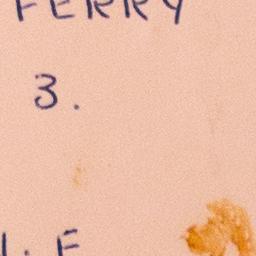 FERRY
3.